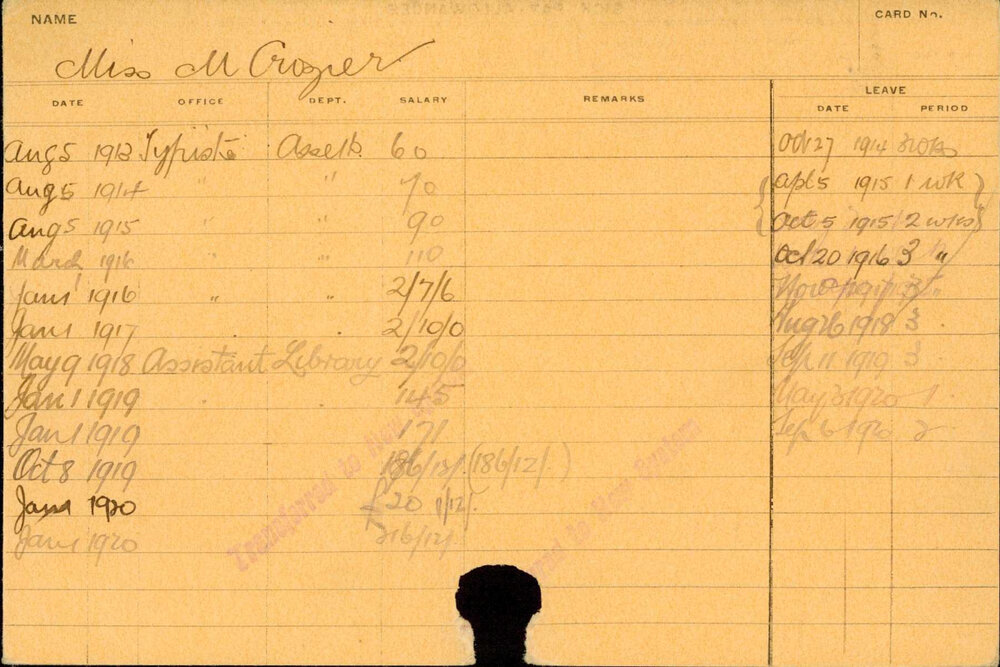 NAME
CARD No.
Miss M Crozier
DATE OFFICE DEPT. SALARY REMARKS LEAVE
DATE PERIOD
Aug 5 1913 Typiste 60 Oct 27 1914
Aug 5 1914 " " 70 { Apl 5 1915 1 wk }
Aug 5 1915 " " 90 { Oct 5 1915 2 wks }
March 1916 " 110 Oct 20 1916 3 "
Jan 1 1916 " " 2/7/6 "
Jan 1 1917 . . 2/10/0 Aug 26 1918 3
May 9 1918 Assistant Library 2/10/0 Sep 11 1919 3
Jan 1 1919 . . 145 May 3 1920 1
Jan 1 1919 171 Sep 6 1920 2
Oct 8 1919 186/12/. (186/12/.)
Jan 1 1920 1/12/.
Jan 1 1920 216/12/.
Transferred to New
to New System